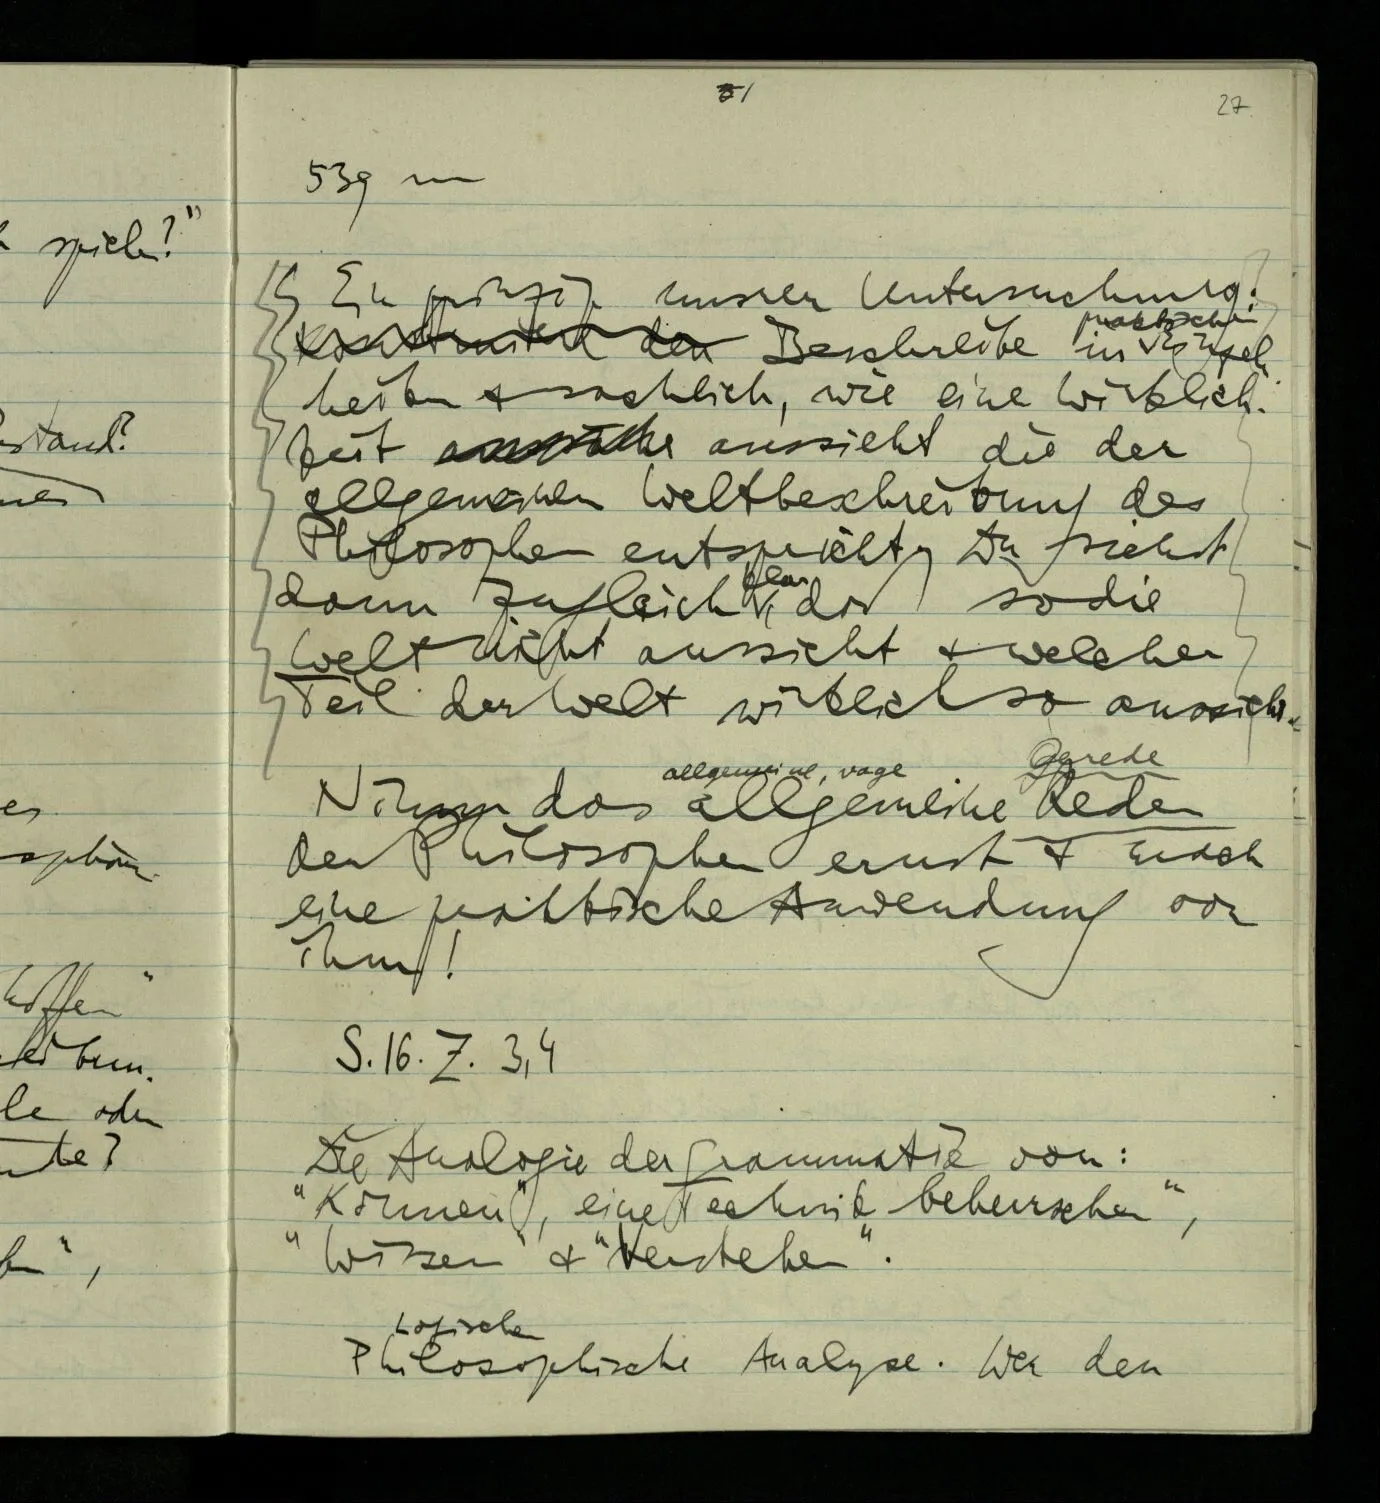 h spielen?"
Bestand?
es
hoffen"
le oder
",
51
27
539
Ein Prinzip unserer Untersuchung:
Konstruiere den Beschreibe in praktischen Einzel
heiten & sachlich, wie eine Wirklich-
keit aussieht die der
allgemeinen Weltbeschreibung des
Philosophen entspricht, Du siehst
dann zugleich klar, daß so die
Welt nicht aussieht & welcher
Teil der Welt wirklich so aussieht.
allgemeine, vage Gerede
Nimm das allgemeine Reden
der Philosophen ernst & mach
eine praktische Anwendung von
ihm!
S. 16. Z. 3,4
Die Analogie der Grammatik von:
"Können", "eine Technik beherrschen",
"Wissen" & "Verstehen".
Logische
Philosophische Analyse. Wer den